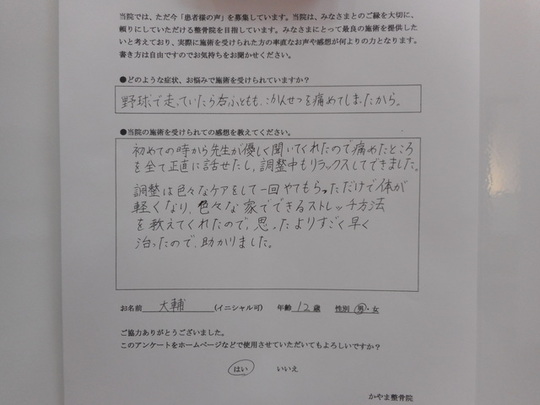 当院では、ただ今「患者様の声」を募集しています。当院は、みなさまとのご縁を大切に、
頼りにしていただける整骨院を目指しています。みなさまにとって最良の施術を提供した
いと考えており、実際に施術を受けられた方の率直なお声や感想が何よりの力となります。
書き方は自由ですのでお気持ちをお聞かせください。
●どのような症状、お悩みで施術を受けられていますか?
野球で走っていたら右ふともも、こかんせつを痛めてしまったから。
●当院の施術を受けられての感想を教えてください。
初めての時から先生が優しく聞いてくれたので痛めたところ
を全て正直に話せたし、調整中もリラックスしてできました。
調整は色々なケアをして一回やてもらっただけで体が
軽くなり、色々な家でできるストレッチ方法
を教えてくれたので、思ったよりすごく早く
治ったので、助かりました。
お名前 大輔 (イニシャル可) 年齢 12歳 性別 男・女
ご協力ありがとうございました。
このアンケートをホームページなどで使用させていただいてもよろしいですか?
はい いいえ
かやま整骨院